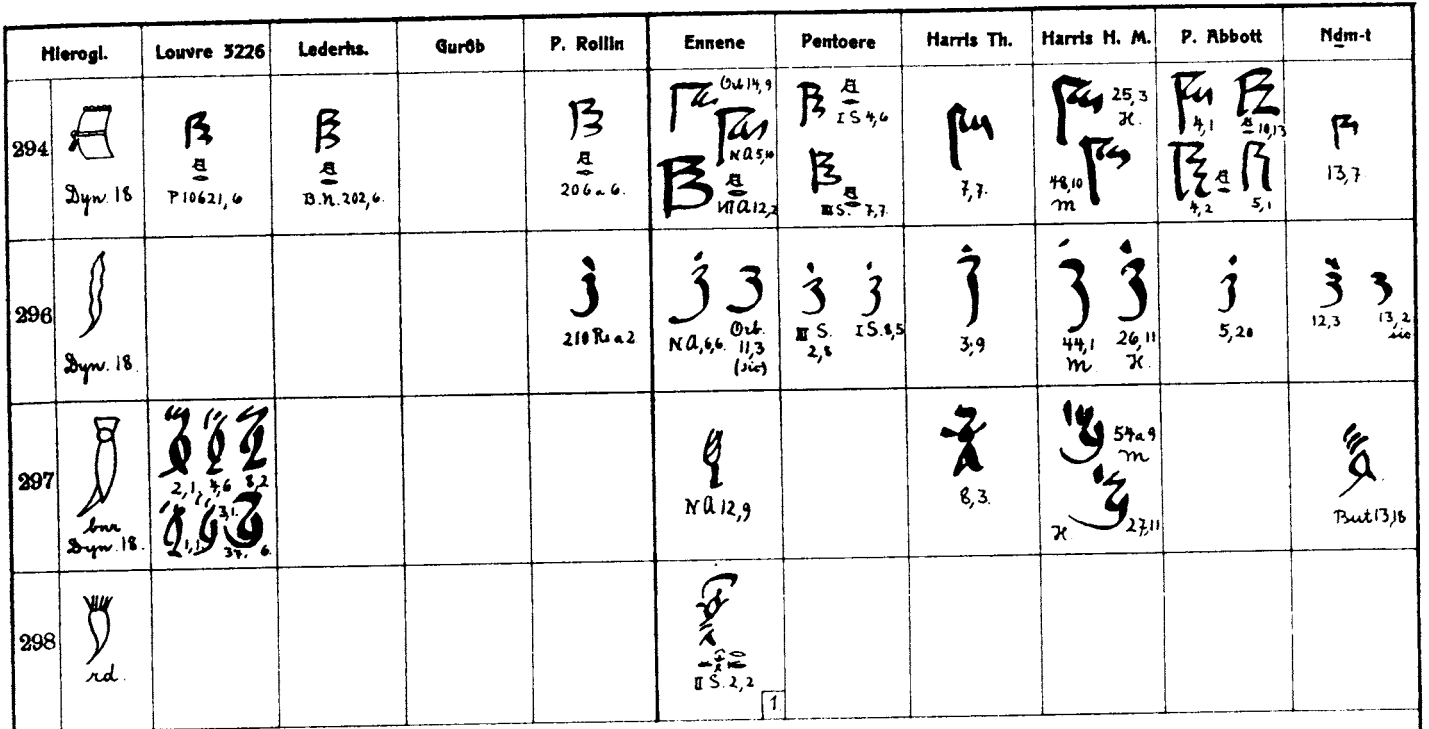 Hierogl. Louvre 3226 Lederhs. Gurôb P. Rollin Ennene Pentoere Harris Th. Harris H. M. P. Abbott Nḏm-t
294
Dyn. 18
P 10621, 6
B.N. 202, 6.
206a 6.
Orb 14, 9
NA 5,10
NA 12,2
I S 4, 6
III S. 7,7.
7,7.
25,3
H.
48,10
M
4,1
10,13
4,2
5,1
13,7
296
Dyn. 18.
210 Rs a 2
NA, 6,6.
Orb. 11,3
(sic)
III S.
2,8
I S. 8,5
3,9
44,1
M
26,11
H.
5,20
12,3
13,2
sic
297
bnr
Dyn. 18.
2,1. 4,6 8,2
1,1. 3,1. 6.
NA 12,9
8,3.
54a 9
M
H 27,11
But 13,18
298
rd.
II S. 2,2
1